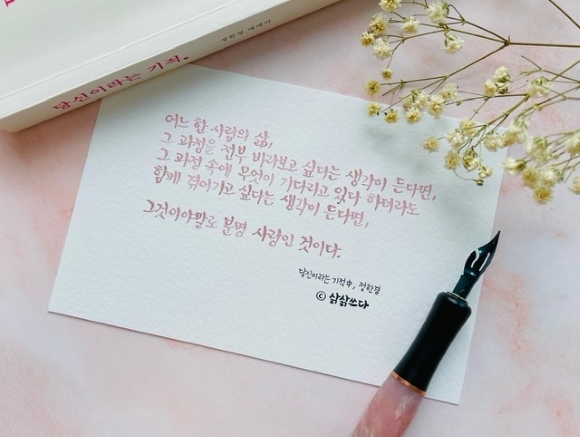 당신이라는 기적.
정한경 에세이
어느 한 사람의 삶,
그 과정을 전부 바라보고 싶다는 생각이 든다면,
그 과정 속에 무엇이 기다리고 있다 하더라도
함께 겪어가고 싶다는 생각이 든다면,
그것이야말로 분명 사랑인 것이다.
당신이라는 기적 中, 정한경
© 삶삶쓰다